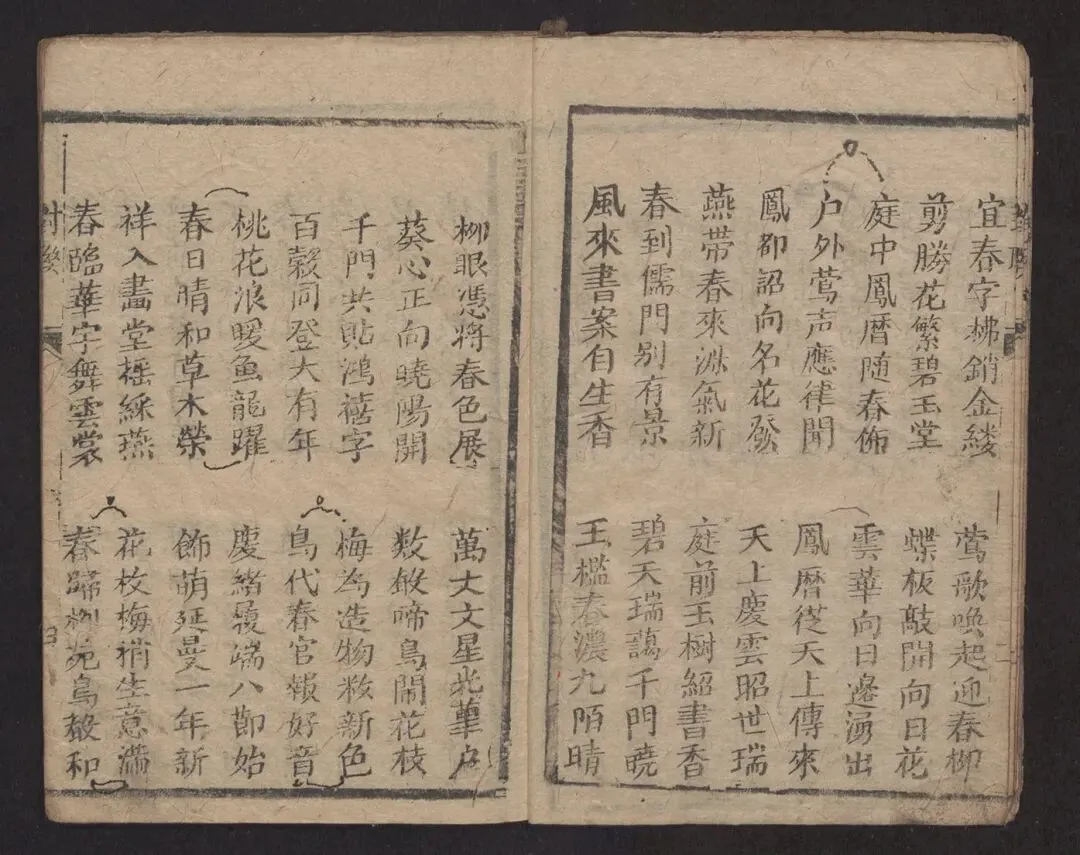 宜春字拂銷金縷
剪勝花繁碧玉堂
庭中鳳曆随春佈
户外莺声應律聞
鳳都詔向名花發
燕带春來淑氣新
春到儒門别有景
風來書案自生香
莺歌唤起迎春柳
蝶板敲開向日花
雲華向日邊湧出
鳳曆從天上傳來
天上慶雲昭世瑞
庭前玉樹紹書香
碧天瑞藹千門曉
玉檻春濃九陌晴
柳眼憑將春色展
葵心正向曉陽開
千門共貼鴻禧字
百穀同登大有年
桃花浪暖鱼龍躍
春日晴和草木榮
祥入畵堂摇綵燕
春臨華宇舞雲裳
萬丈文星光華户
数啼鳥鬧花枝
梅為造物敉新色
鳥代春官報好音
慶緒發端八節始
飾萌延曼一年新
花枝梅稍生意滿
春歸柳苑鳥聲和